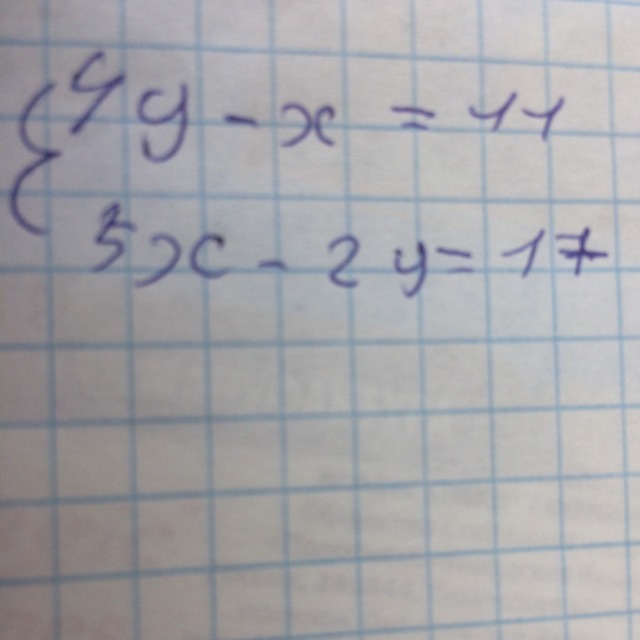 {4y - x = 11
5x - 2y = 17